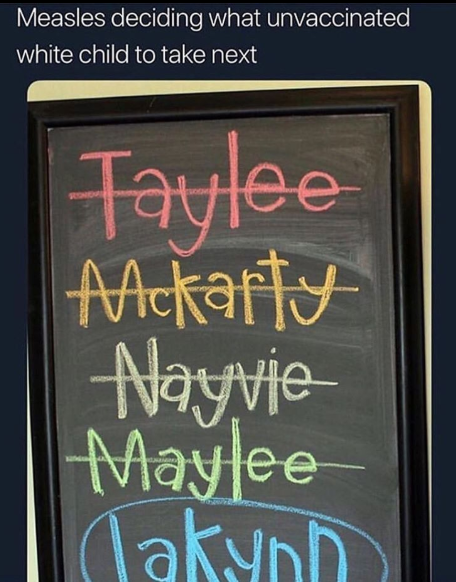 Measles deciding what unvaccinated
white child to take next
Taylee
Mckarty
Nayvie
Maylee
Lakynn